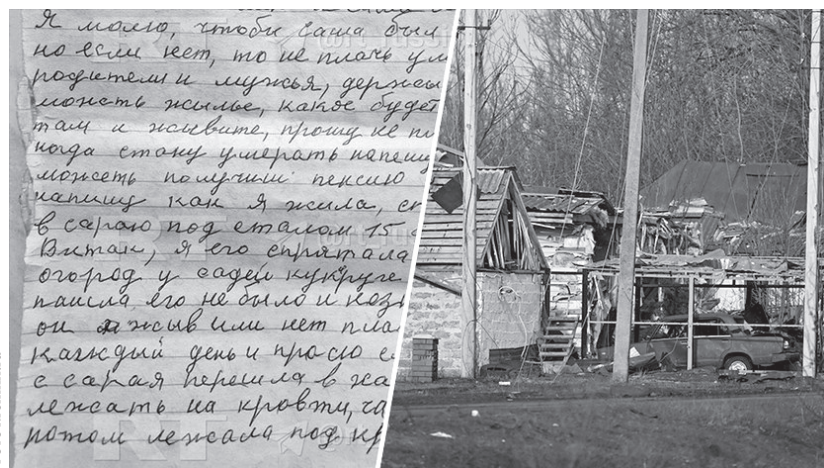 Я молю, чтобы Саша был
но если нет, то не плачь ум
родители и мужья, держы
можеть жылье, какое будет
там и жывите, прошу не пл
когда стану умерать напешу
можеть получиш пенсию
напишу как я жыла, сп
в сараю под сталом 15
Виталик, я его спрятала
огород у садеи кукрузе
пашла его не было и коз
он жыв или нет пла
каждый день и прасю
с сарая перешла в ха
лежать на кровти, ча
потом лежала под кр
RT